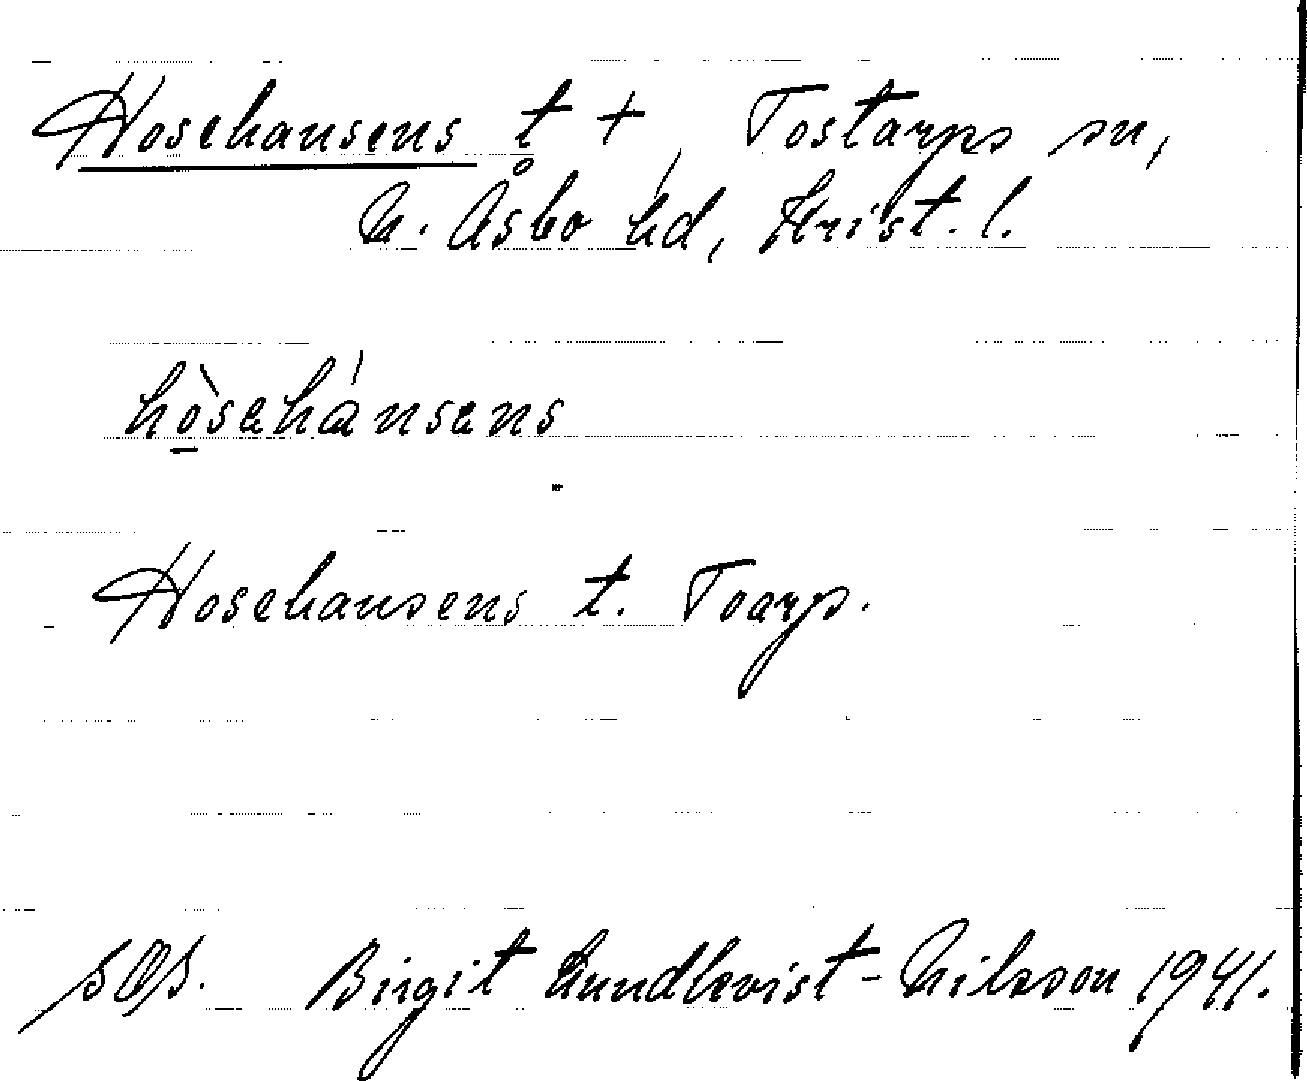 Hosehansens t +, Tostarps sn,
N. Åsbo hd, Krist. l.
hòsehánsens
Hosehansens t. Toarp.
SOS. Birgit Lundkvist-Nilsson 1941.